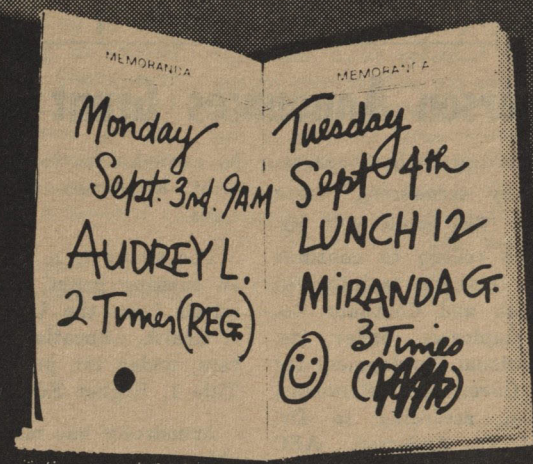 MEMORANDA
Monday
Sept. 3rd. 9AM
AUDREY L.
2 Times (REG.)
MEMORANDA
Tuesday
Sept 4th
LUNCH 12
MIRANDA G.
3 Times